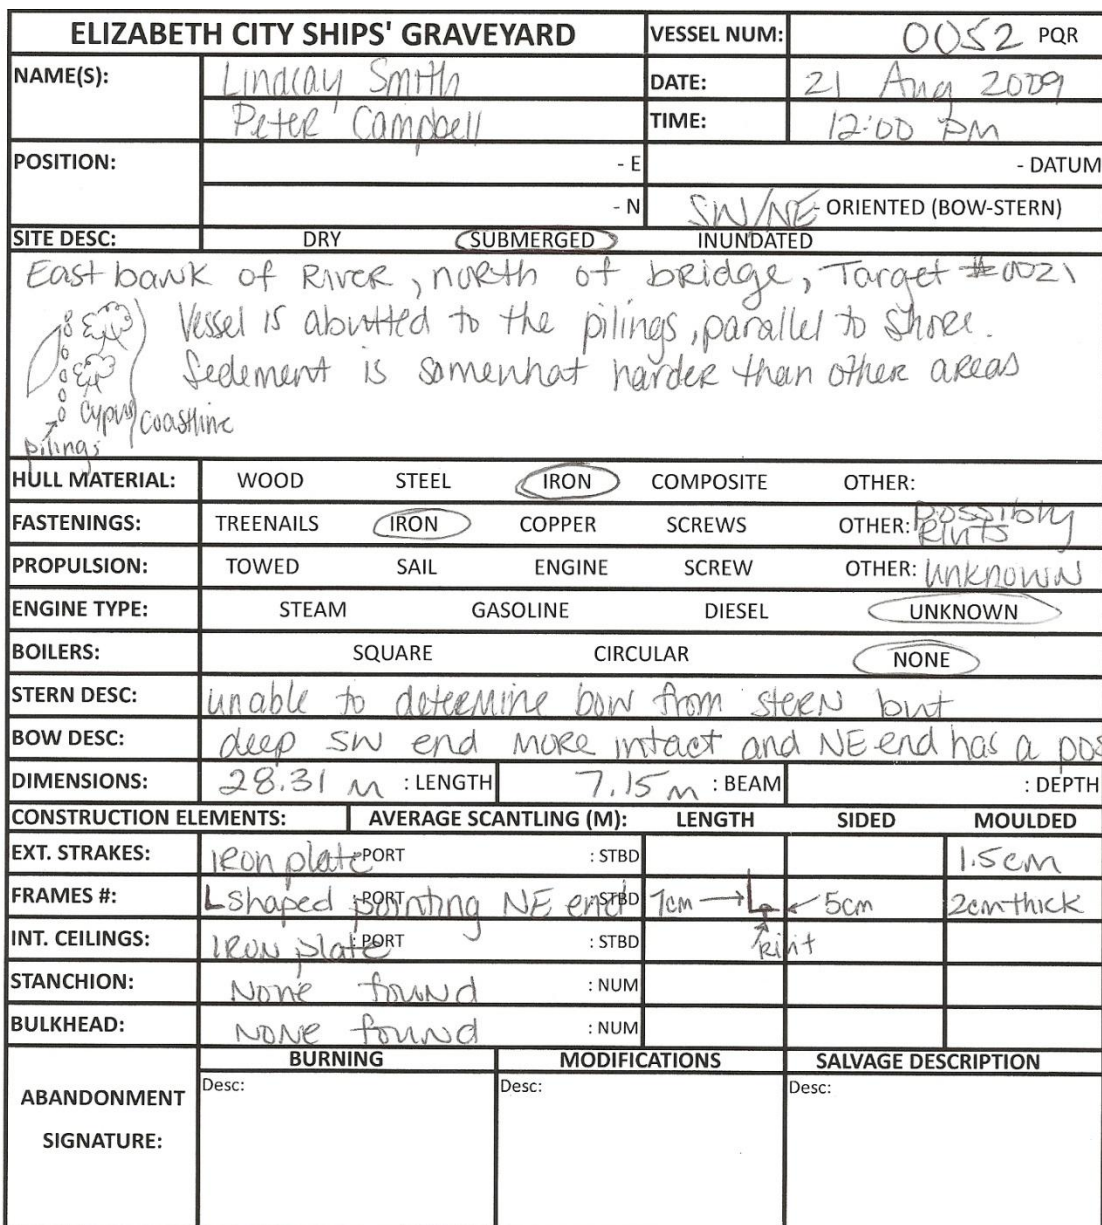 ELIZABETH CITY SHIPS' GRAVEYARD VESSEL NUM: 0052 PQR
NAME(S): Lindsay Smith DATE: 21 Aug 2009
Peter Campbell TIME: 12:00 PM
POSITION: - E - DATUM
- N SW/NE - ORIENTED (BOW-STERN)
SITE DESC: DRY SUBMERGED INUNDATED
East bank of River, north of bridge, Target #0021
Vessel is abutted to the pilings, parallel to shore.
Sedement is somewhat harder than other areas
coastline
pilings
HULL MATERIAL: WOOD STEEL IRON COMPOSITE OTHER:
FASTENINGS: TREENAILS IRON COPPER SCREWS OTHER: possibly
PROPULSION: TOWED SAIL ENGINE SCREW OTHER: unknown
ENGINE TYPE: STEAM GASOLINE DIESEL UNKNOWN
BOILERS: SQUARE CIRCULAR NONE
STERN DESC: unable to determine bow from stern but
BOW DESC: deep SW end more intact and NE end has a pos
DIMENSIONS: 28.31 m : LENGTH 7.15 m : BEAM : DEPTH
CONSTRUCTION ELEMENTS: AVERAGE SCANTLING (M): LENGTH SIDED MOULDED
EXT. STRAKES: iron plate : PORT : STBD 1.5cm
FRAMES #: L shaped : PORT pointing NE end : STBD 7cm L 5cm 2cm thick
INT. CEILINGS: iron plate : PORT : STBD
STANCHION: None found : NUM
BULKHEAD: None found : NUM
BURNING MODIFICATIONS SALVAGE DESCRIPTION
ABANDONMENT Desc: Desc: Desc:
SIGNATURE: